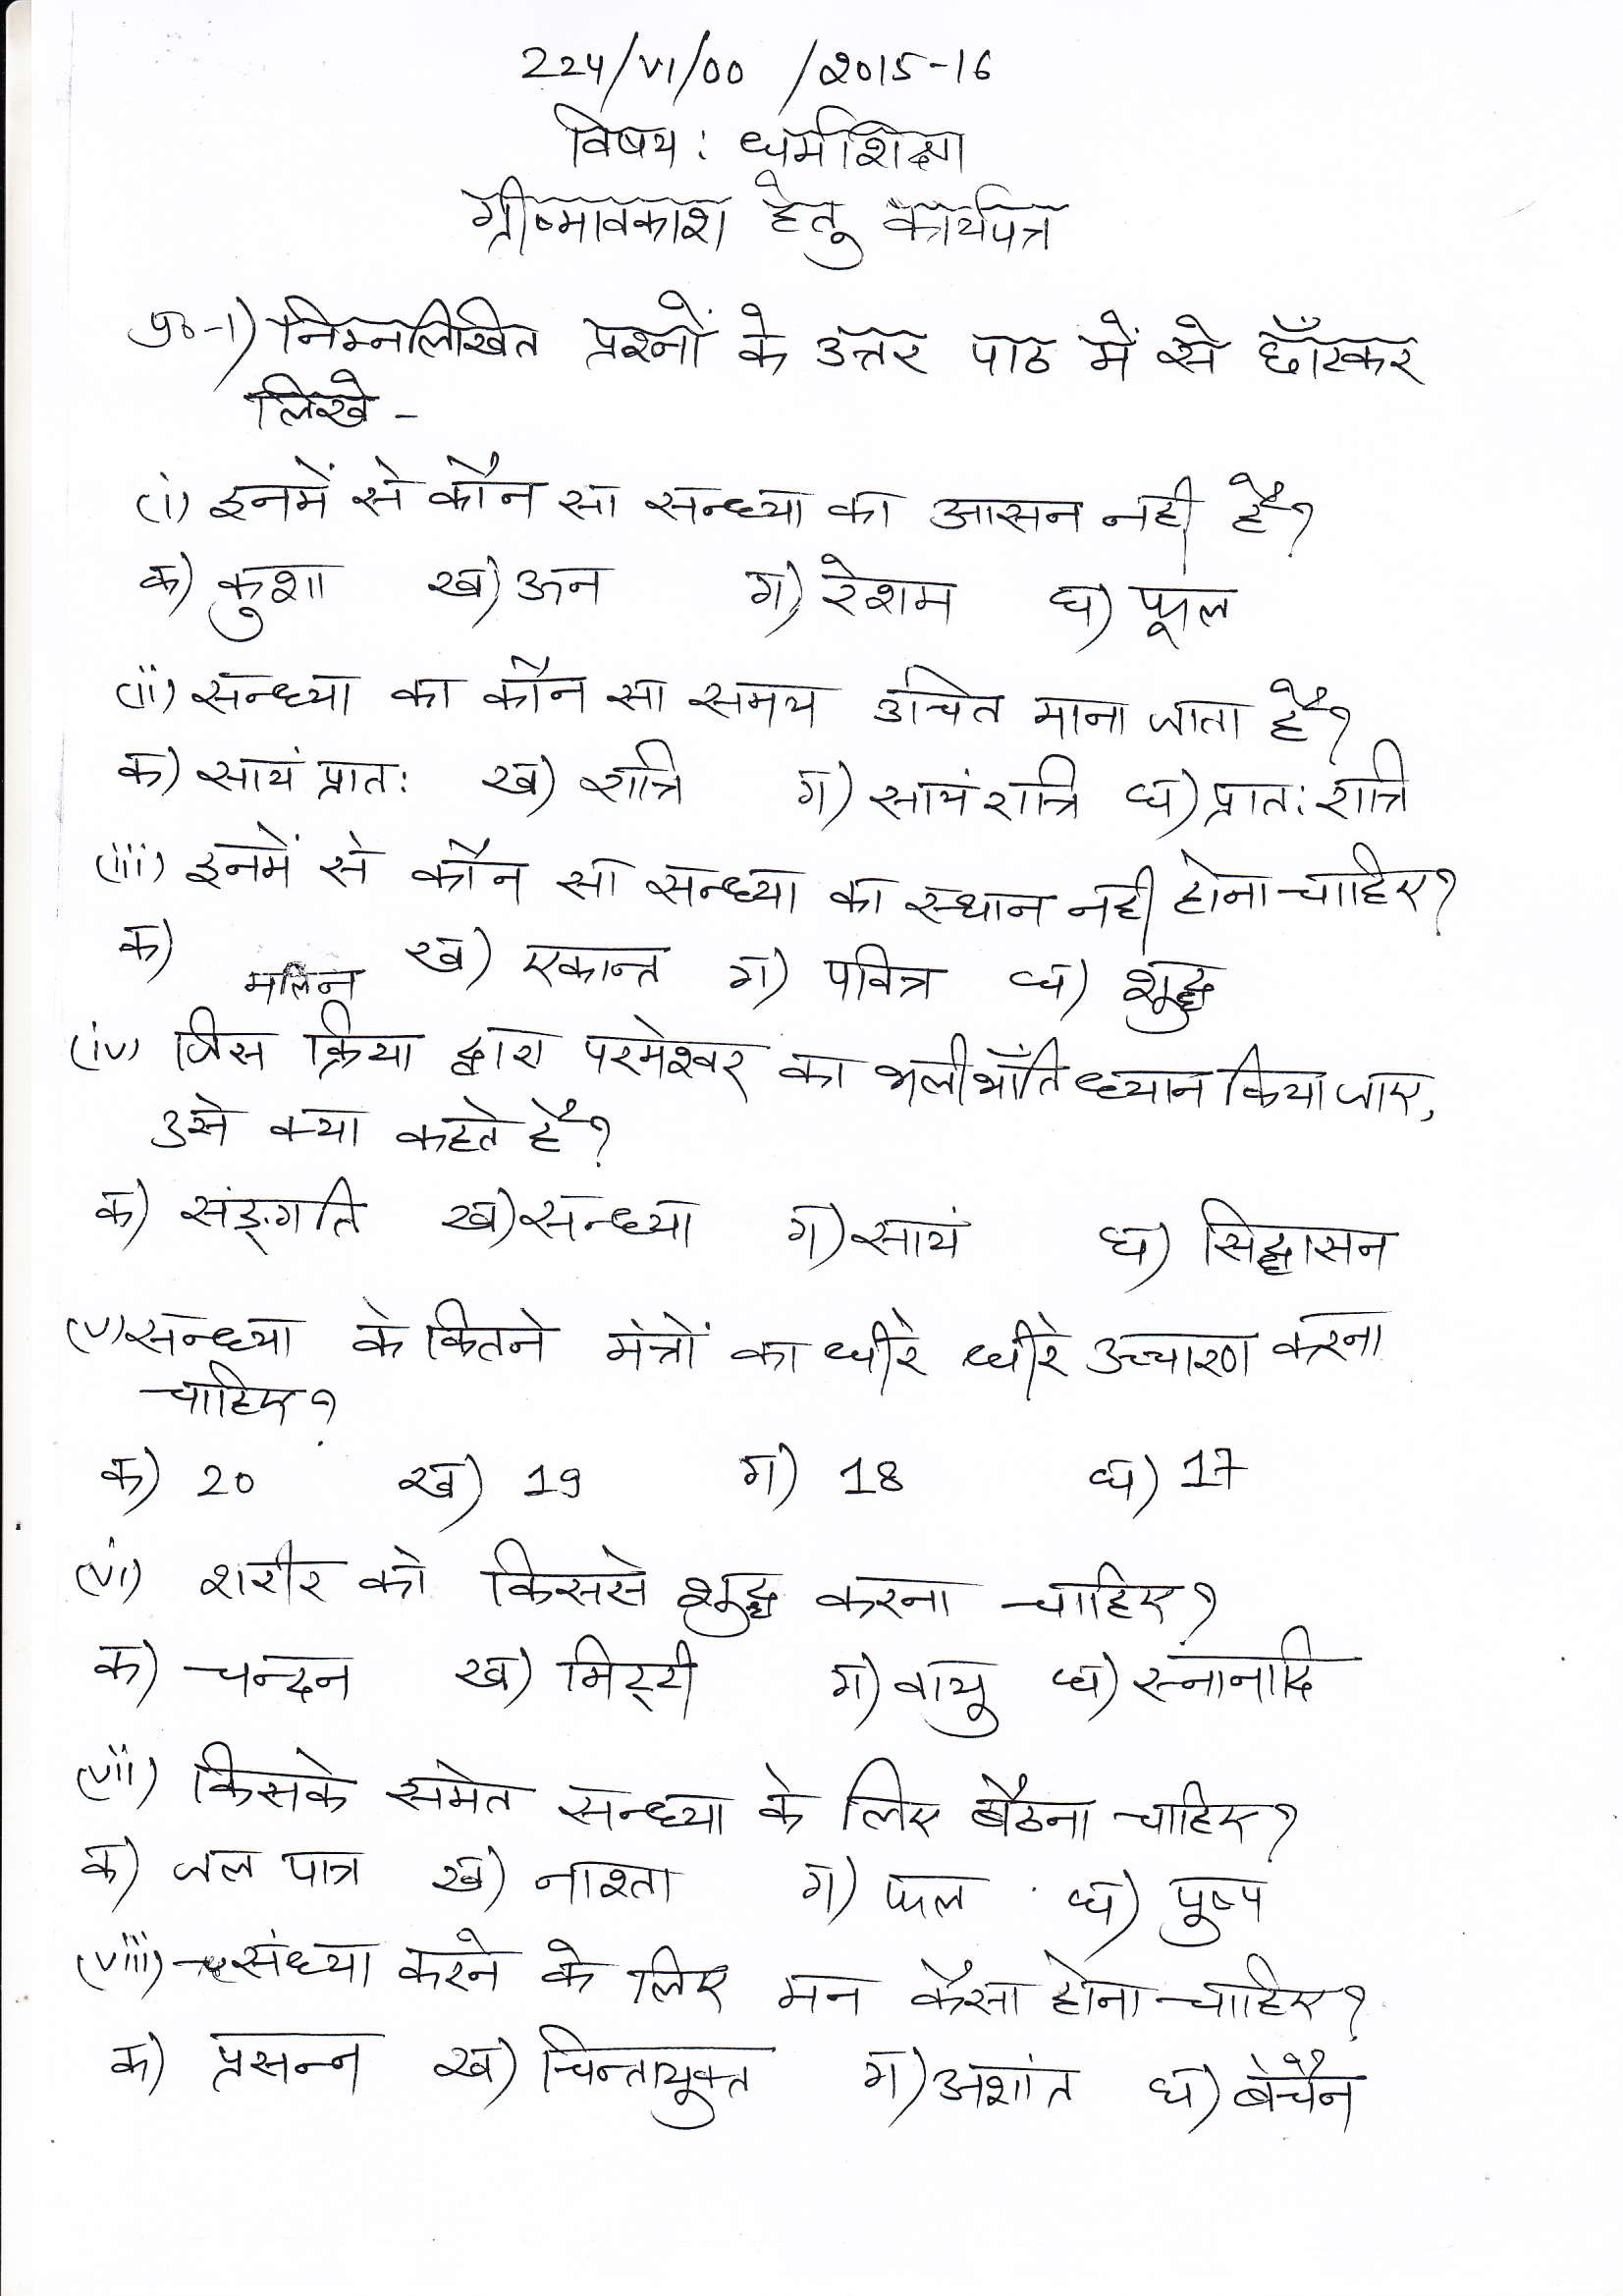 224/VI/00 /2015-16
विषय: धर्मशिक्षा
ग्रीष्मावकाश हेतु कार्यपत्र
प्र०-1) निम्नलिखित प्रश्नों के उत्तर पाठ में से छाँटकर
लिखे -
(i) इनमें से कौन सा सन्ध्या का आसन नही है?
क) कुशा ख) ऊन ग) रेशम घ) फूल
(ii) सन्ध्या का कौन सा समय उचित माना जाता है?
क) सायं प्रात: ख) रात्रि ग) सायं रात्रि घ) प्रात: रात्रि
(iii) इनमें से कौन सा सन्ध्या का स्थान नही होना चाहिए?
क) मलिन ख) एकान्त ग) पवित्र घ) शुद्ध
(iv) जिस क्रिया द्वारा परमेश्वर का भलीभाँति ध्यान किया जाए,
उसे क्या कहते है?
क) संङ्गति ख) सन्ध्या ग) सायं घ) सिद्धासन
(v) सन्ध्या के कितने मंत्रों का धीरे धीरे उच्चारण करना
चाहिए?
क) 20 ख) 19 ग) 18 घ) 17
(vi) शरीर को किससे शुद्ध करना चाहिए?
क) चन्दन ख) मिट्टी ग) वायु घ) स्नानादि
(vii) किसके समेत सन्ध्या के लिए बैठना चाहिए?
क) जल पात्र ख) नाश्ता ग) फल घ) पुष्प
(viii) संध्या करने के लिए मन कैसा होना चाहिए?
क) प्रसन्न ख) चिन्तायुक्त ग) अशांत घ) बेचैन